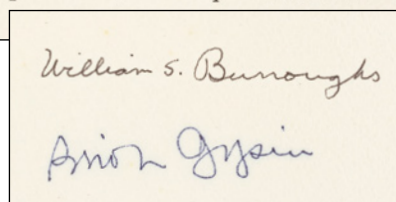 William S. Burroughs
Brion Gysin